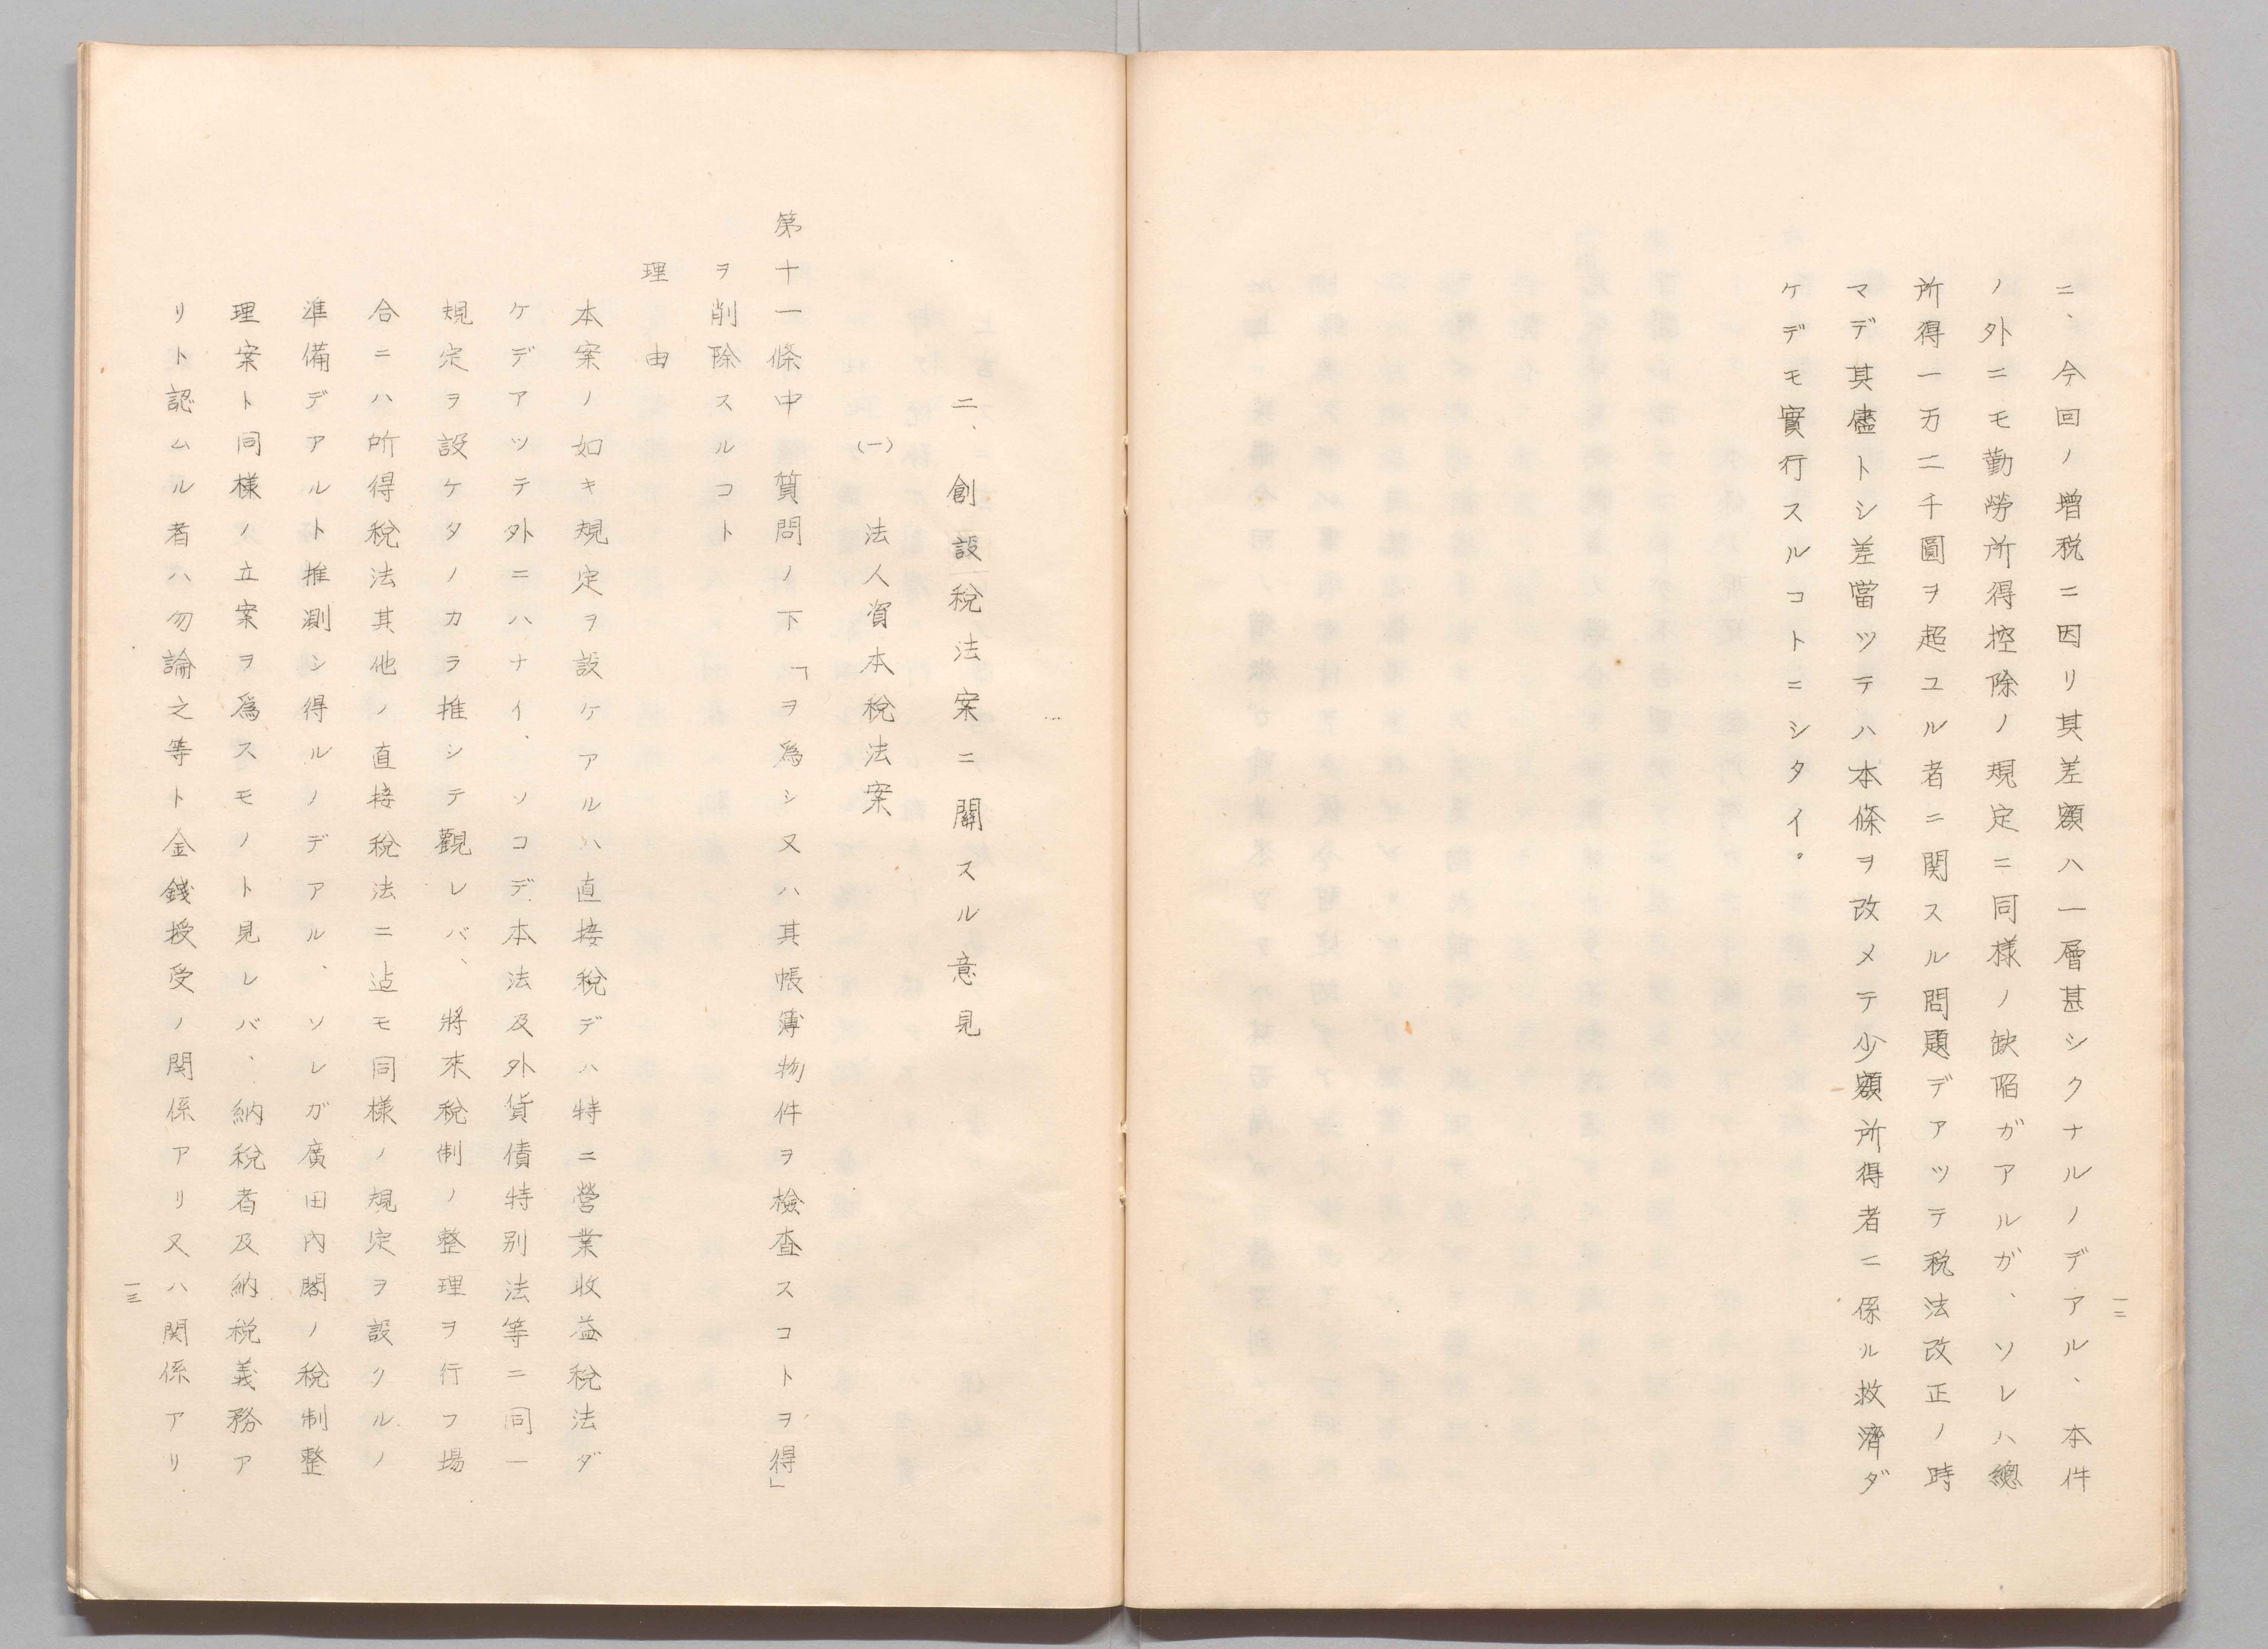 ニ、今回ノ増税ニ因リ其差額ハ一層甚シクナルノデアル、本件
ノ外ニモ勤勞所得控除ノ規定ニ同様ノ缺陷ガアルガ、ソレハ總
所得一万二千圓ヲ超ユル者ニ関スル問題デアツテ税法改正ノ時
マデ其儘トシ差當ツテハ本條ヲ改メテ少額所得者ニ係ル救濟ダ
ケデモ實行スルコトニシタイ。
一二
二、創設税法案ニ關スル意見
(一)法人資本税法案
第十一條中質問ノ下「ヲ爲シ又ハ其帳簿物件ヲ檢査スコトヲ得」
ヲ削除スルコト
理由
本案ノ如キ規定ヲ設ケアルハ直接税デハ特ニ營業收益税法ダ
ケデアツテ外ニハナイ、ソコデ本法及外貨債特別法等ニ同一
規定ヲ設ケタノカラ推シテ觀レバ、將來税制ノ整理ヲ行フ場
合ニハ所得税法其他ノ直接税法ニ迠モ同様ノ規定ヲ設クルノ
準備デアルト推測シ得ルノデアル、ソレガ廣田内閣ノ税制整
理案ト同様ノ立案ヲ爲スモノト見レバ、納税者及納税義務ア
リト認ムル者ハ勿論之等ト金錢授受ノ関係アリ又ハ関係アリ
一三